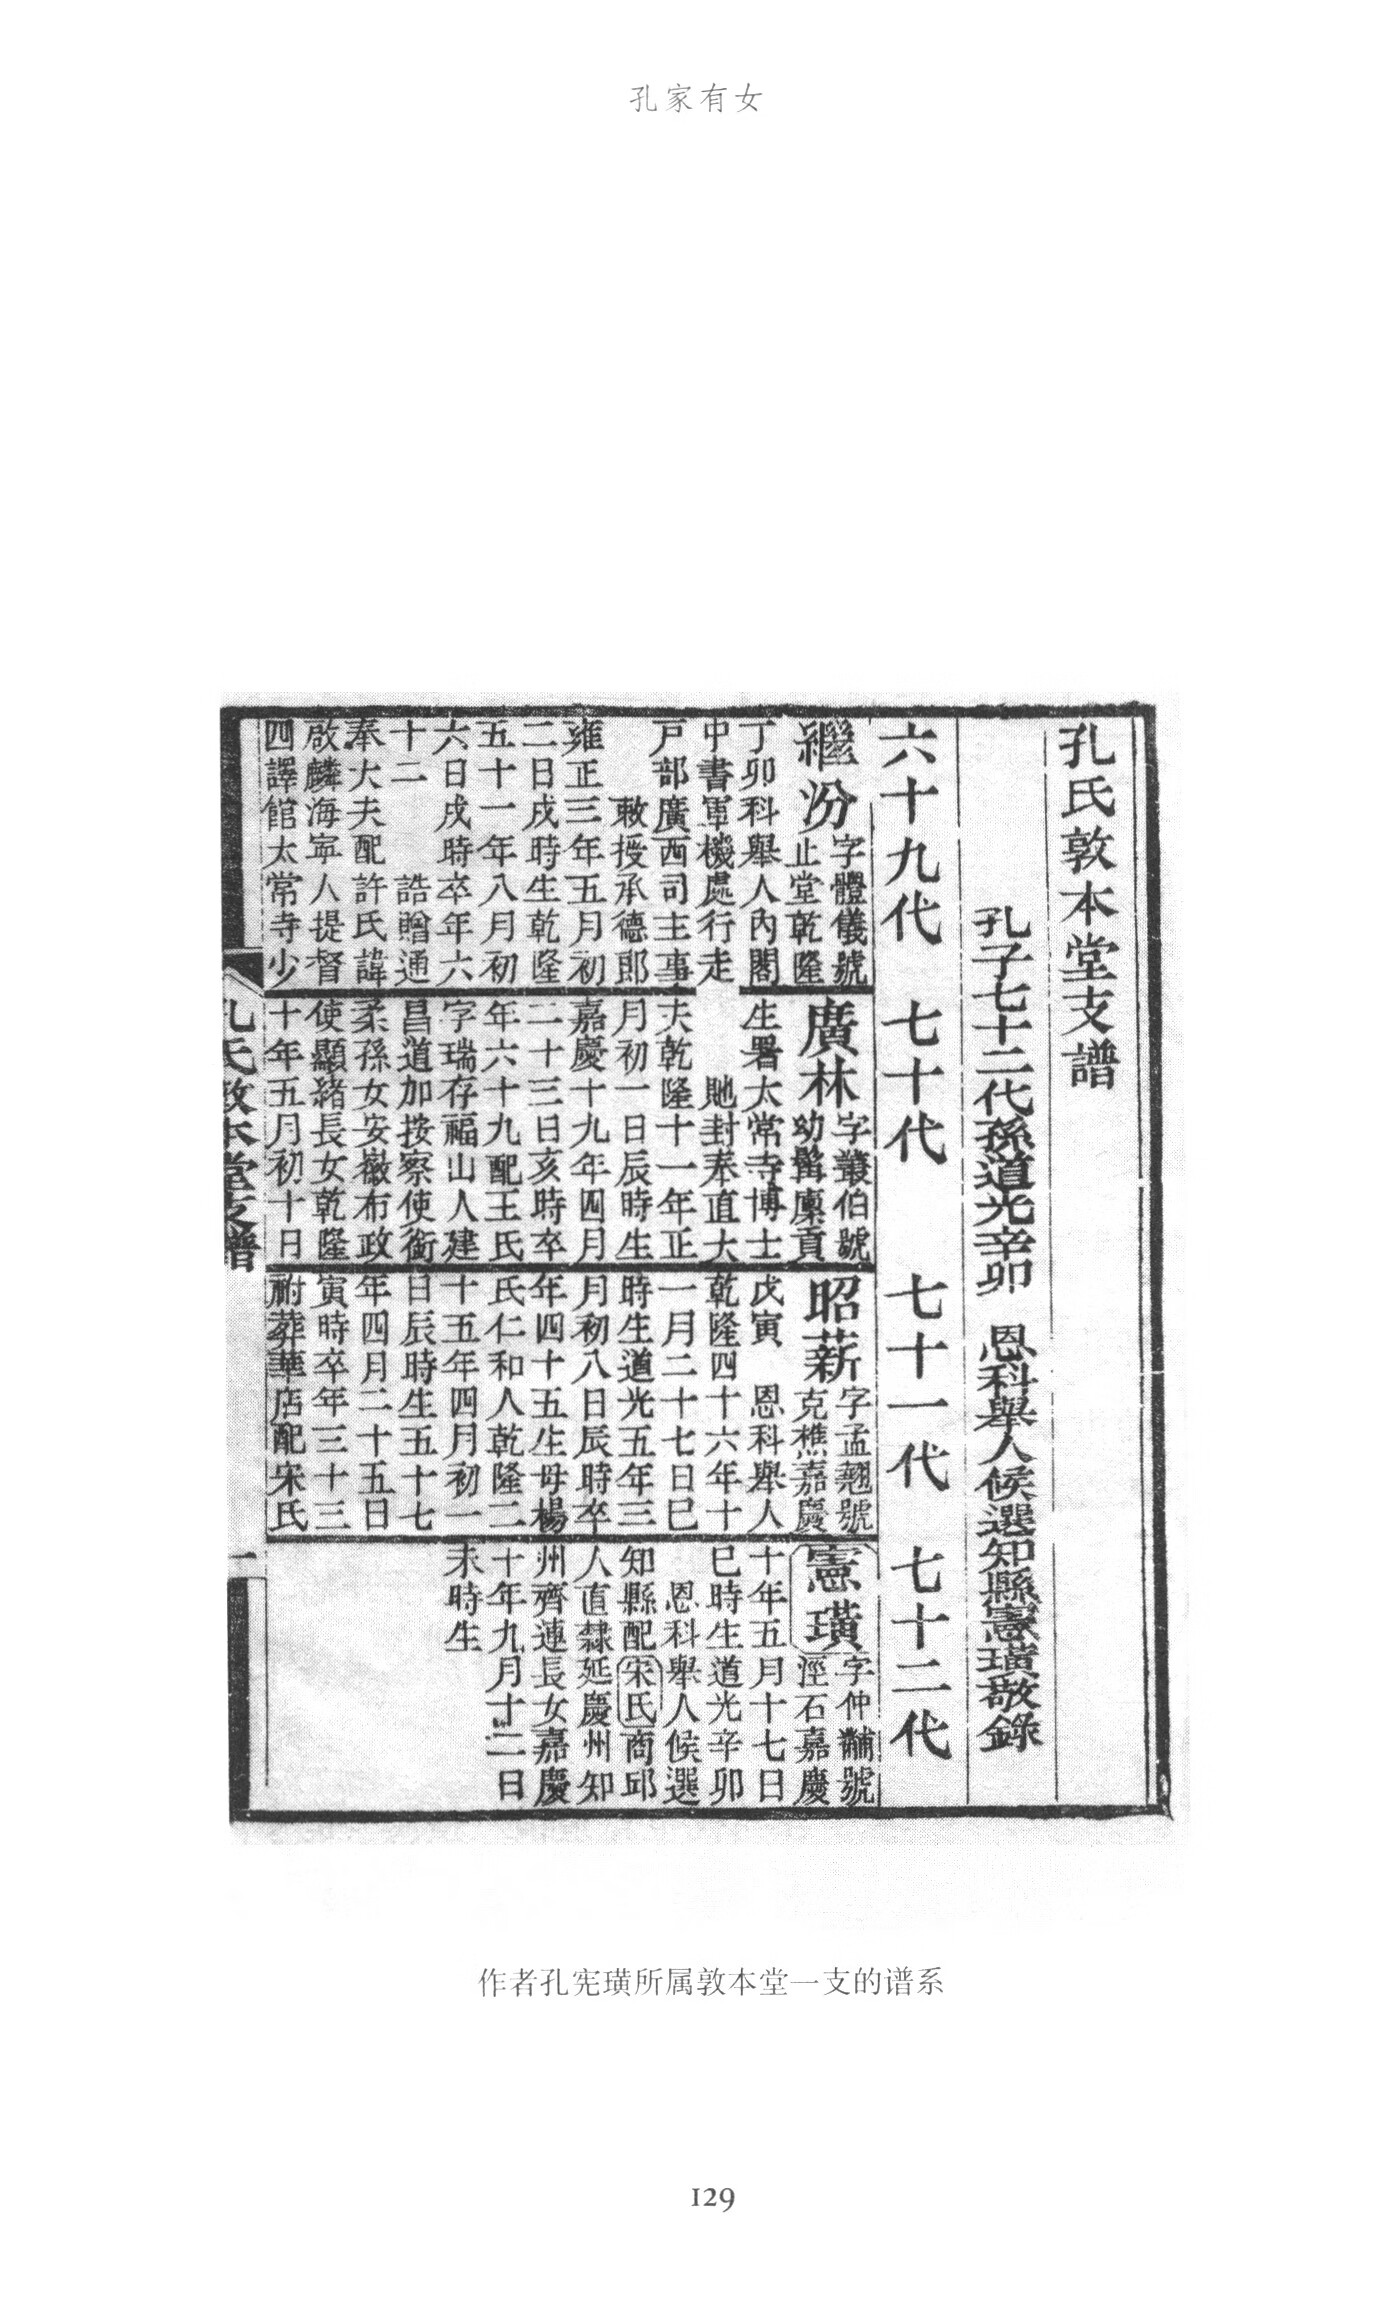 孔家有女
孔氏敦本堂支譜
孔子七十二代孫道光辛卯　恩科舉人候選知縣憲璜敬錄
六十九代　七十代　七十一代　七十二代
繼汾
字體儀號
止堂乾隆
丁卯科舉人內閣
中書軍機處行走
戶部廣西司主事
敕授承德郎
雍正三年五月初
二日戌時生乾隆
五十一年八月初
六日戌時卒年六
十二　誥贈通
奉大夫配許氏諱
啟麟海寧人提督
四譯館太常寺少
廣林
字叢伯號
幼髯廩貢
生署太常寺博士
貤封奉直大
夫乾隆十一年正
月初一日辰時生
嘉慶十九年四月
二十三日亥時卒
年六十九配王氏
字瑞存福山人建
昌道加按察使銜
柔孫女安徽布政
使顯緒長女乾隆
十年五月初十日
昭薪
字孟翹號
克樵嘉慶
戊寅　恩科舉人
乾隆四十六年十
一月二十七日巳
時生道光五年三
月初八日辰時卒
年四十五生母楊
氏仁和人乾隆二
十五年四月初一
日辰時生五十七
年四月二十五日
寅時卒年三十三
祔葬華店配宋氏
憲璜
字仲黼號
涇石嘉慶
十年五月十七日
巳時生道光辛卯
恩科舉人候選
知縣配宋氏商邱
人直隸延慶州知
州齊連長女嘉慶
十年九月十二日
未時生
孔氏敦本堂支譜
一
作者孔宪璜所属敦本堂一支的谱系
129